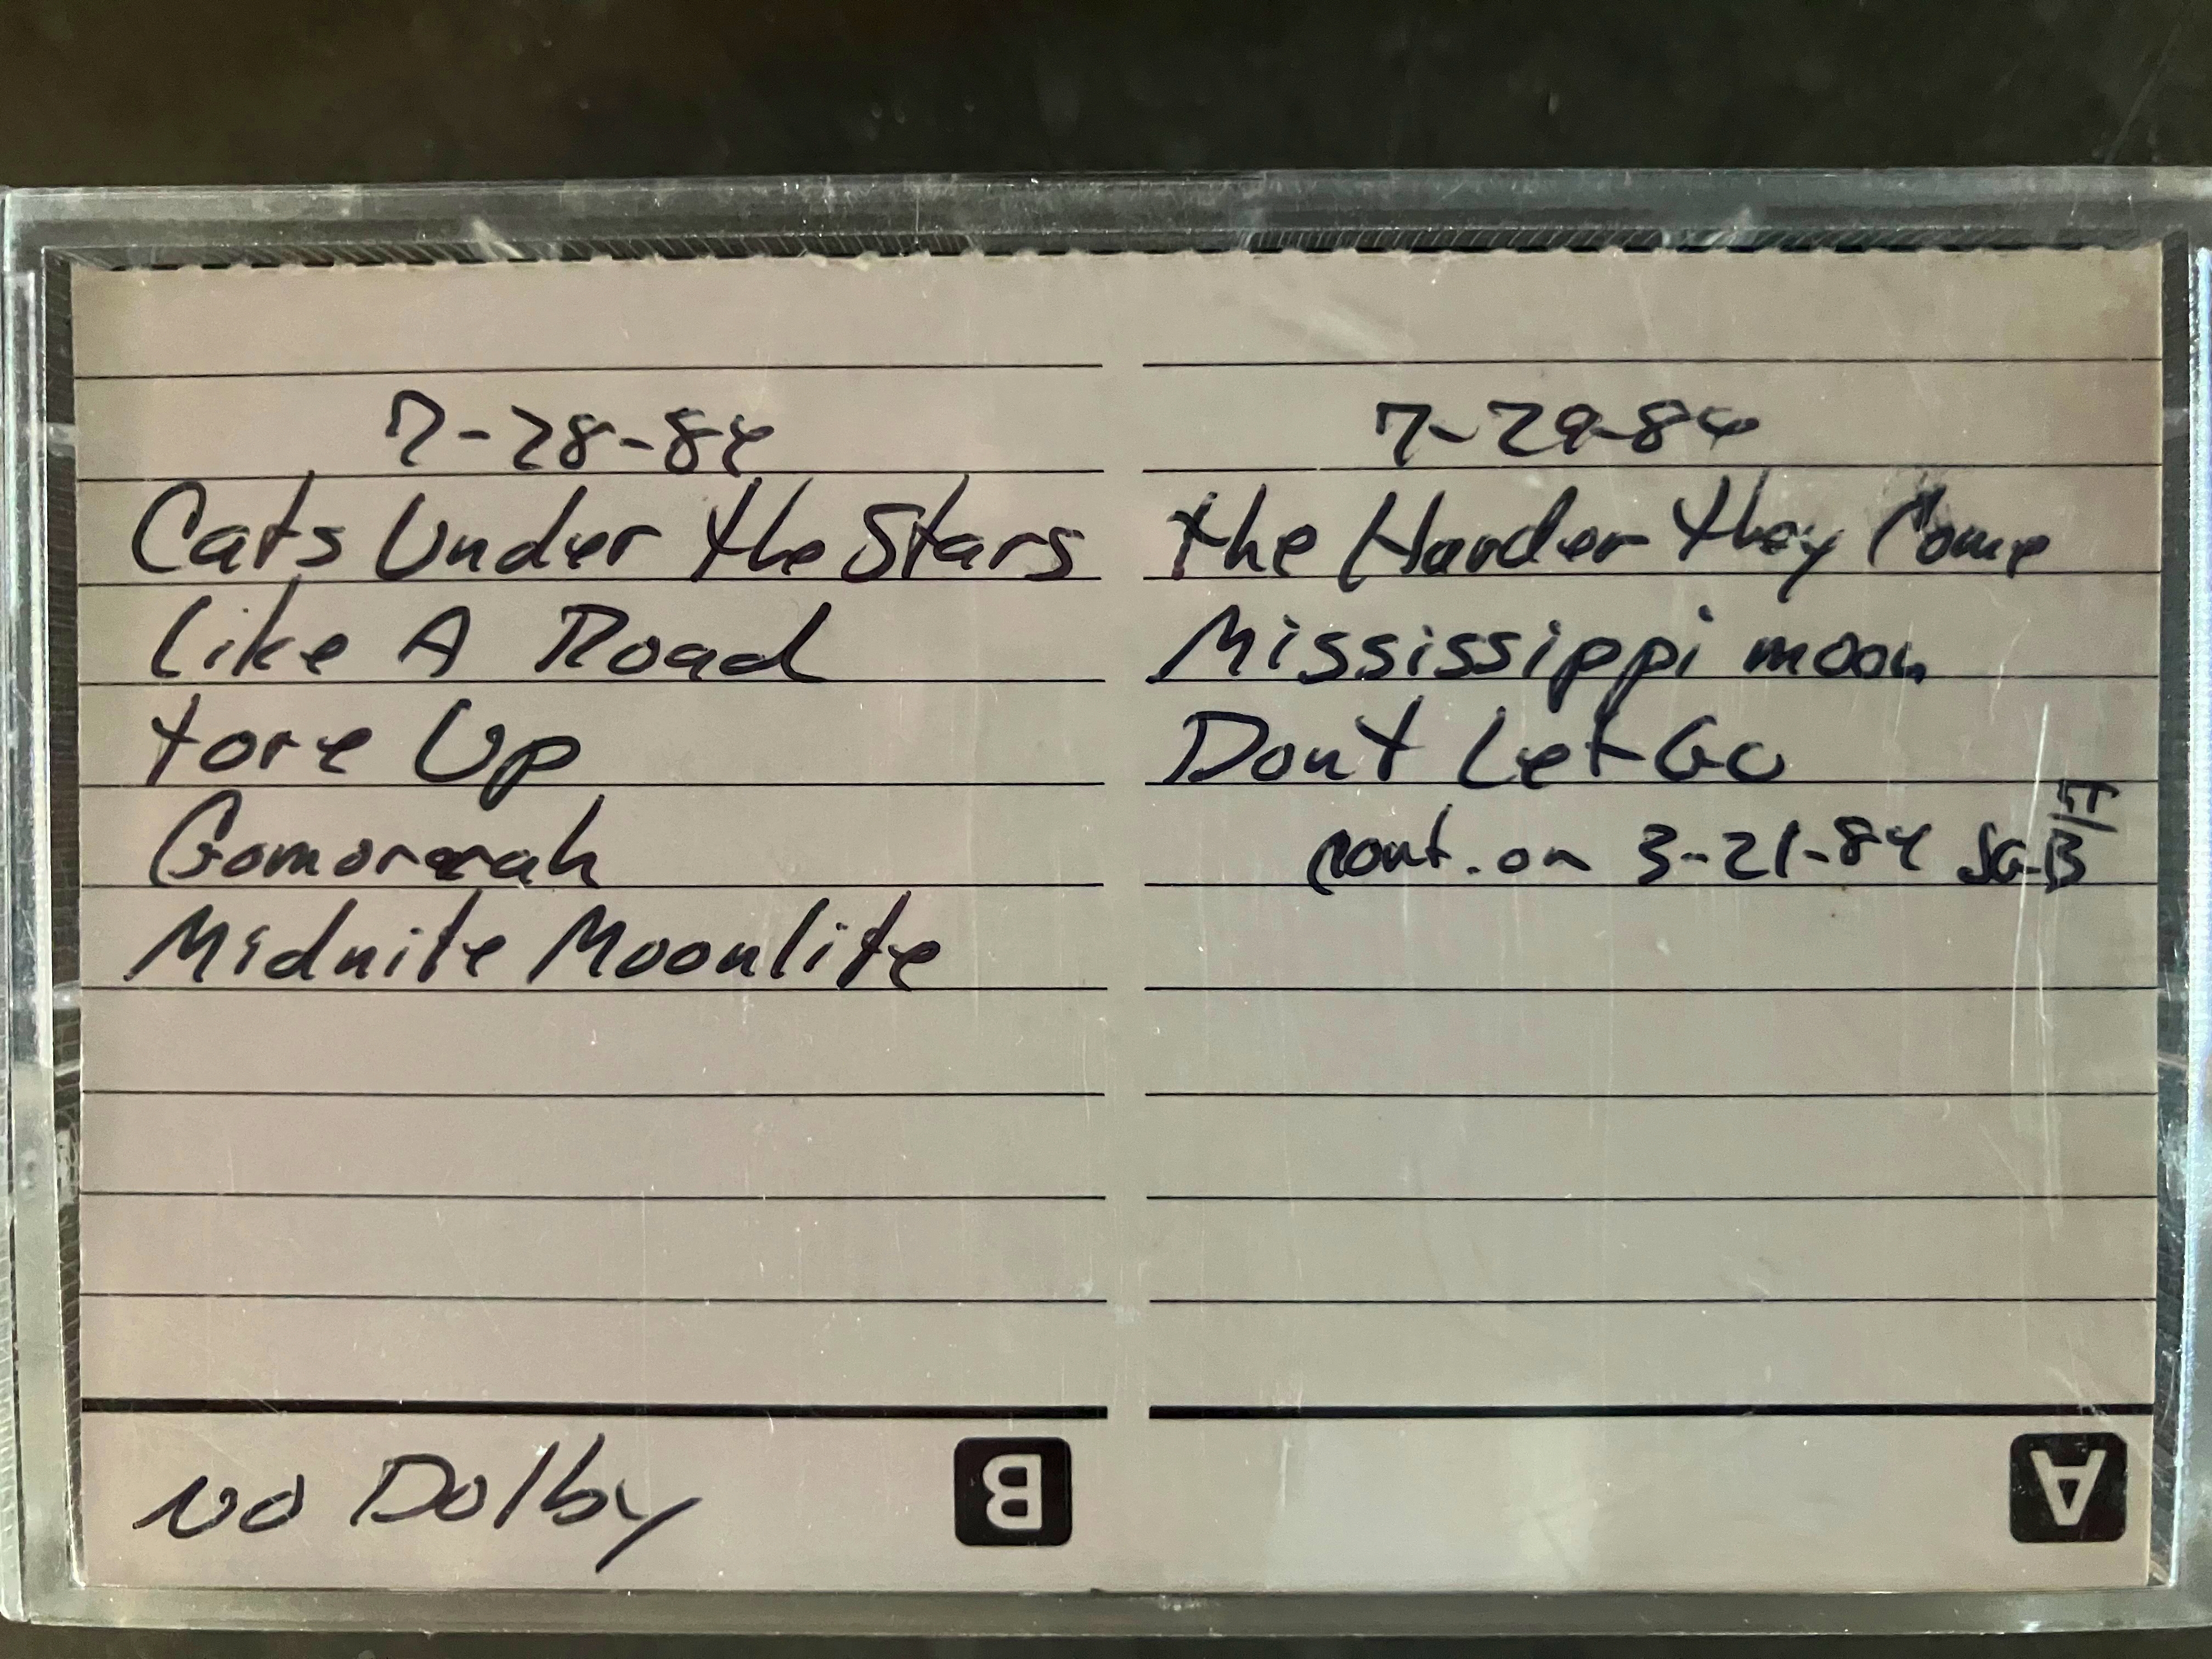 7-28-84
Cats Under the Stars
Like A Road
tore Up
Gomorrah
Midnite Moonlite
No Dolby
B
7-29-84
the Harder they Come
Mississippi moon
Dont Let Go
cont. on 3-21-84
A